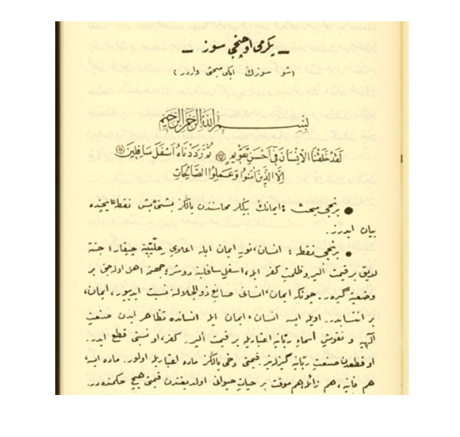 ـ يكرمى اوچنجى سوز ـ
(شو سوزك ايكى مبحثى واردر)
بِسْمِ اللّٰهِ الرَّحْمٰنِ الرَّحِيمِ
لَقَدْ خَلَقْنَا الْاِنْسَانَ فِى اَحْسَنِ تَقْوِيمٍ ۞ ثُمَّ رَدَدْنَاهُ اَسْفَلَ سَافِلِينَ ۞
اِلَّا الَّذِينَ اٰمَنُوا وَعَمِلُوا الصَّالِحَاتِ
● برنجى مبحث : ايمانك بيكلر محاسنندن يالكز بشنى بش نقطه ايچنده
بيان ايدرز.
● برنجى نقطه : انسان، نور ايمان ايله اعلاى عليّينه چيقار؛ جنته
لايق بر قيمت آلير. وظلمت كفر ايله، اسفل سافلينه دوشر؛ جهنمه اهل اولاجق بر
وضعيته گيرر. چونكه ايمان، انسانى صانع ذوالجلالنه نسبت ايدييور، ايمان،
بر انتسابدر. اويله ايسه انسان، ايمان ايله انسانده تظاهر ايدن صنعت
الٰهيه و نقوش اسماء ربّانيه اعتباريله بر قيمت آلير. كفر، او نسبتى قطع ايدر.
او قطعدن صنعت ربّانيه گيزلنير. قيمتى دخى يالكز ماده اعتباريله اولور. ماده ايسه،
هم فانيه، هم زائله، هم موقت بر حيات حيوانى اولديغندن قيمتى هيچ حكمنده در.